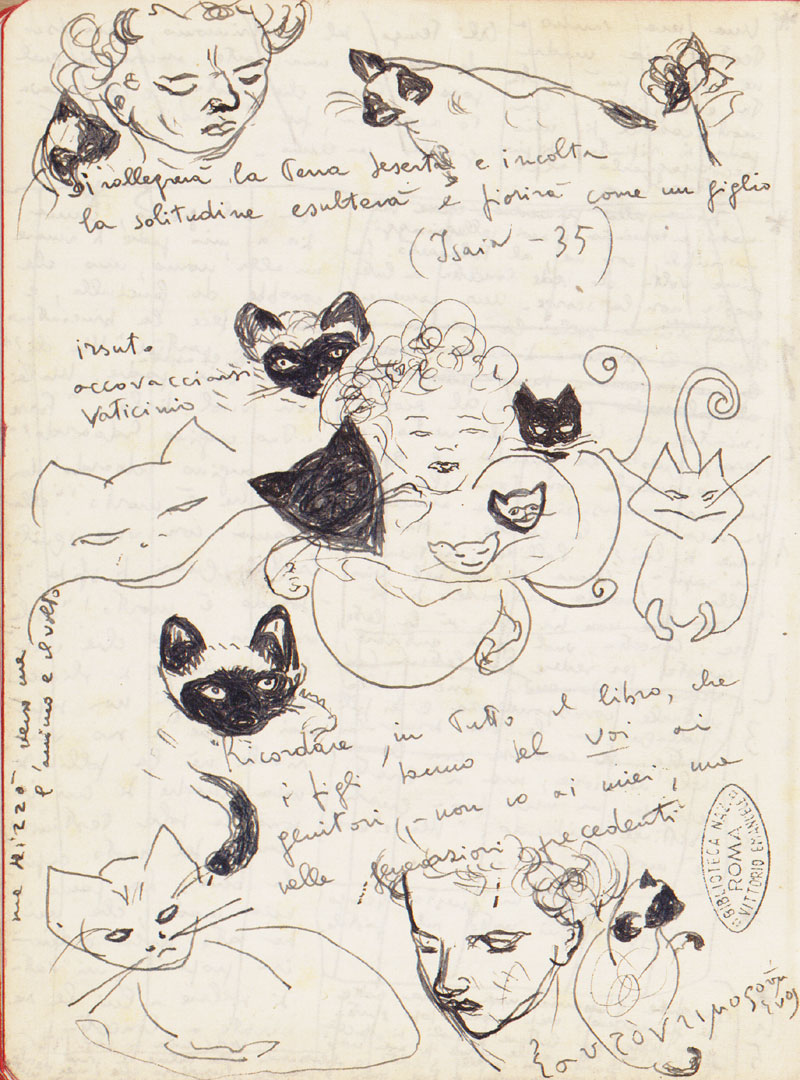 Si rallegrerà la Terra deserta e incolta
la solitudine esulterà e fiorirà come un giglio
(Isaia - 35)
irsuto
accovacciarsi
Vaticinio
me drizzò verso me
l'animo e il volto
Ricordare, in Tutto il libro, che
i figli danno del Voi ai
genitori (- non io ai miei, ma
nelle generazioni precedenti
BIBLIOTECA NAZ.
ROMA
VITTORIO EMANUELE